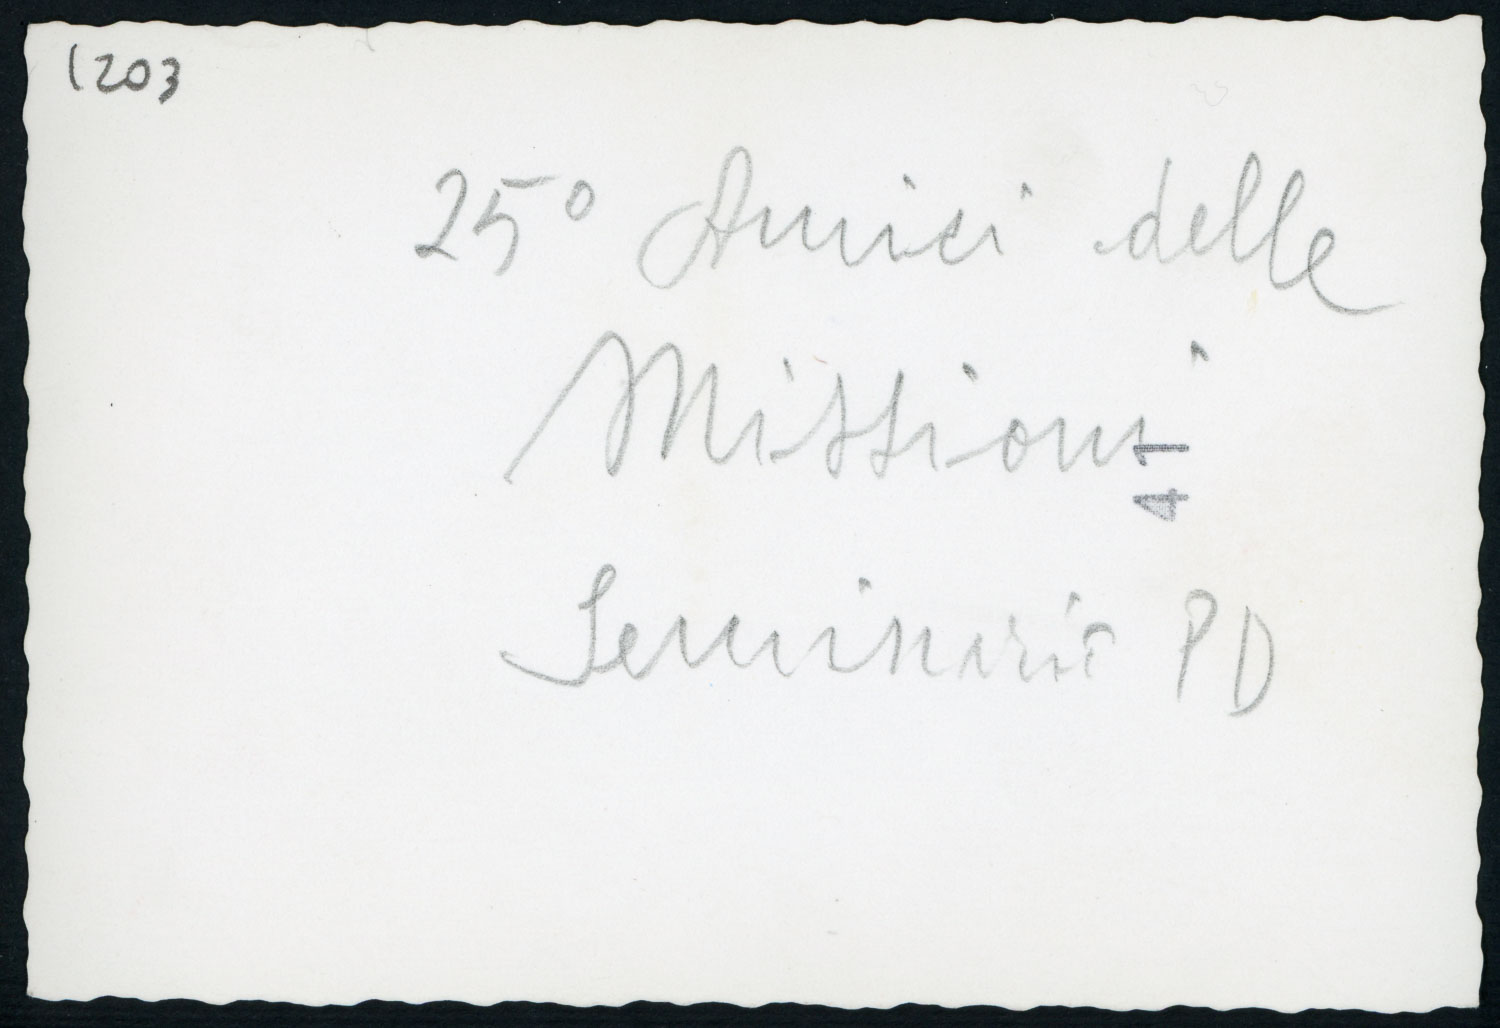 1203
25° Amici delle
Missioni
41
Seminario PD